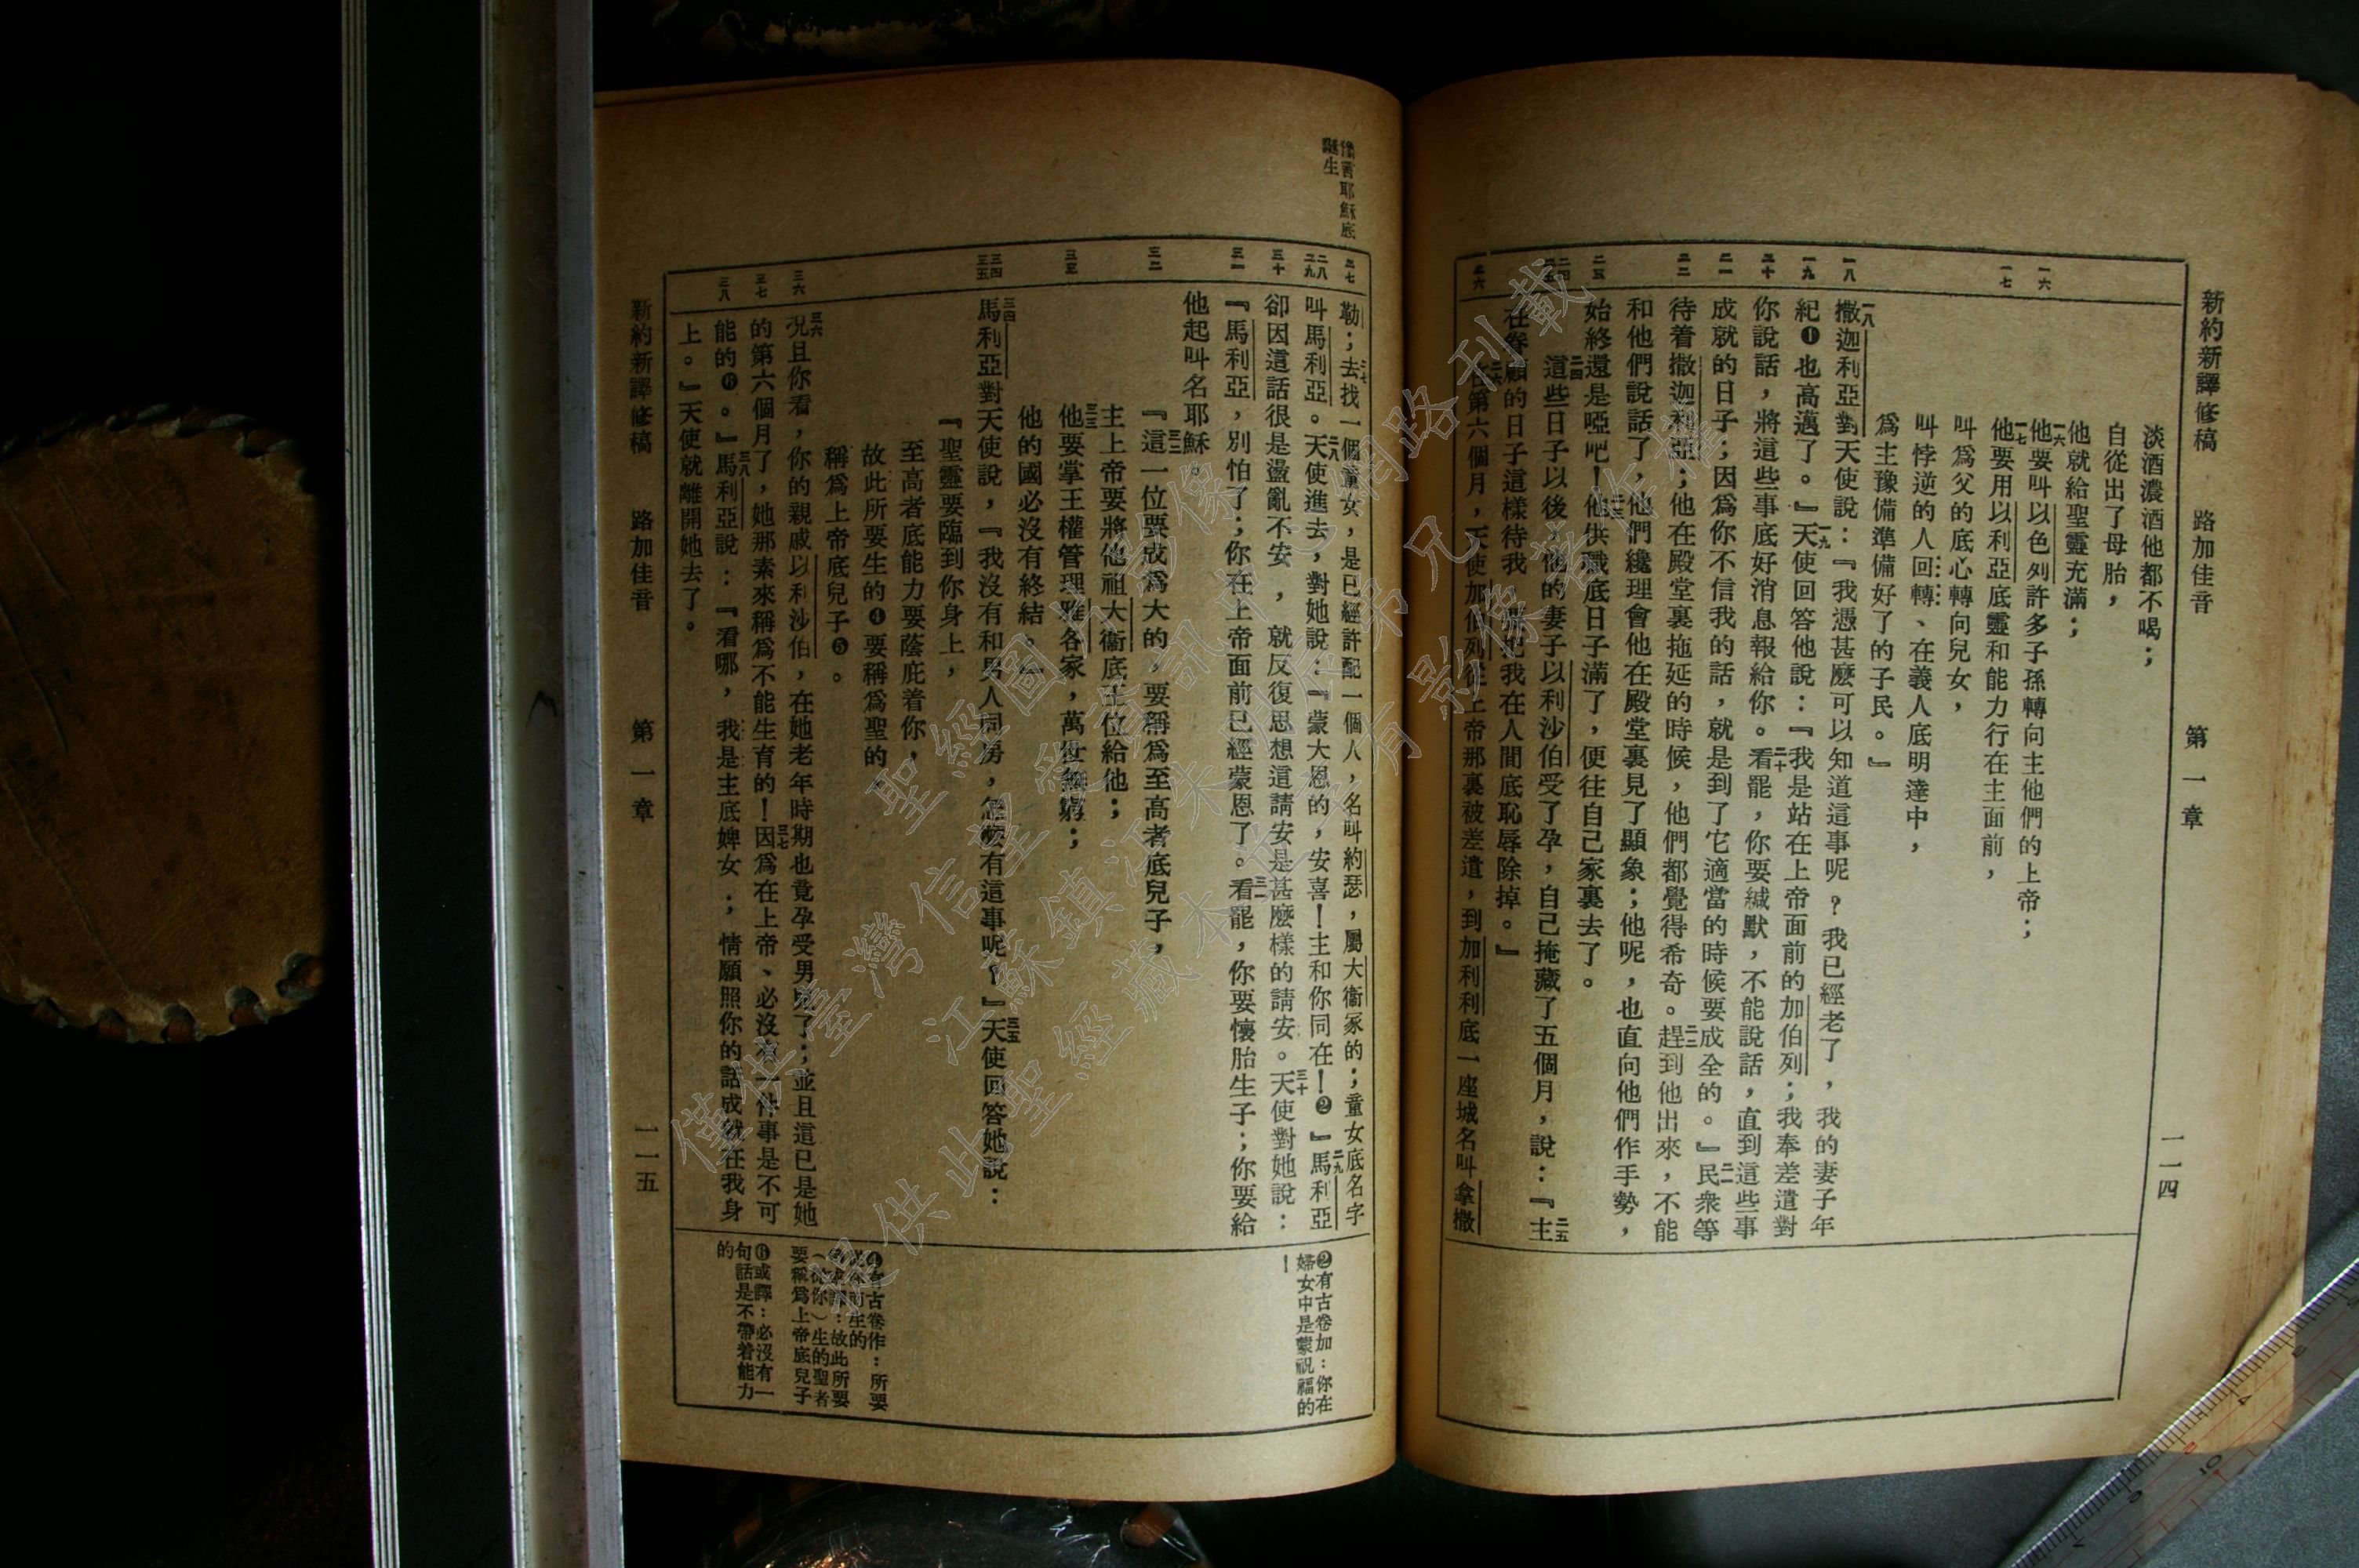 新約新譯修稿　路加佳音　第一章　一一四
淡酒濃酒他都不喝；
自從出了母胎，
他就給聖靈充滿；
一六他要叫以色列許多子孫轉向主他們的上帝；
一七他要用以利亞底靈和能力行在主面前，
叫爲父的底心轉向兒女，
叫悖逆的人回轉、在義人底明達中，
爲主豫備準備好了的子民。』
一八撒迦利亞對天使說：『我憑甚麼可以知道這事呢？我已經老了，我的妻子年
紀❶也高邁了。』一九天使回答他說：『我是站在上帝面前的加伯列；我奉差遣對
你說話，將這些事底好消息報給你。二十看罷，你要緘默，不能說話，直到這些事
成就的日子；因爲你不信我的話，就是到了它適當的時候要成全的。』二一民衆等
待着撒迦利亞；他在殿堂裏拖延的時候，他們都覺得希奇。二二趕到他出來，不能
和他們說話了，他們纔理會他在殿堂裏見了顯象；他呢，也直向他們作手勢，
始終還是啞吧！二三他供職底日子滿了，便往自己家裏去了。
二四這些日子以後，他的妻子以利沙伯受了孕，自己掩藏了五個月，說：二五『主
在眷顧的日子這樣待我，要把我在人間底恥辱除掉。』
二六在第六個月，天使加伯列從上帝那裏被差遣，到加利利底一座城名叫拿撒
一六
一七
一八
一九
二十
二一
二二
二三
二四
二五
二六
豫言耶穌底
誕生
勒；二七去找一個童女，是已經許配一個人，名叫約瑟，屬大衞家的；童女底名字
叫馬利亞。二八天使進去，對她說：『蒙大恩的，安喜！主和你同在！❷』二九馬利亞
卻因這話很是盪亂不安，就反復思想這請安是甚麼樣的請安。三十天使對她說：
『馬利亞，別怕了；你在上帝面前已經蒙恩了。三一看罷，你要懷胎生子；你要給
他起叫名耶穌。
三二『這一位要成爲大的，要稱爲至高者底兒子，
主上帝要將他祖大衞底王位給他；
三三他要掌王權管理雅各家，萬世無窮；
他的國必沒有終結。』
三四馬利亞對天使說，『我沒有和男人同房，怎麼有這事呢？』三五天使回答她說：
『聖靈要臨到你身上，
至高者底能力要蔭庇着你，
故此所要生的❹要稱爲聖的
稱爲上帝底兒子❺。
三六況且你看，你的親戚以利沙伯，在她老年時期也竟孕受男兒了；並且這已是她
的第六個月了，她那素來稱爲不能生育的！三七因爲在上帝、必沒有一件事是不可
能的❻。』三八馬利亞說：『看哪，我是主底婢女；情願照你的話成就在我身
上。』天使就離開她去了。
二七
二八
二九
三十
三一
三二
三三
三四
三五
三六
三七
三八
❷有古卷加：你在
婦女中是蒙祝福的
！
❹有古卷作：所要
從你而生的
：故此所要
（從你）生的聖者
要稱爲上帝底兒子
❻或譯：必沒有一
句話是不帶着能力
的
新約新譯修稿　路加佳音　第一章　一一五